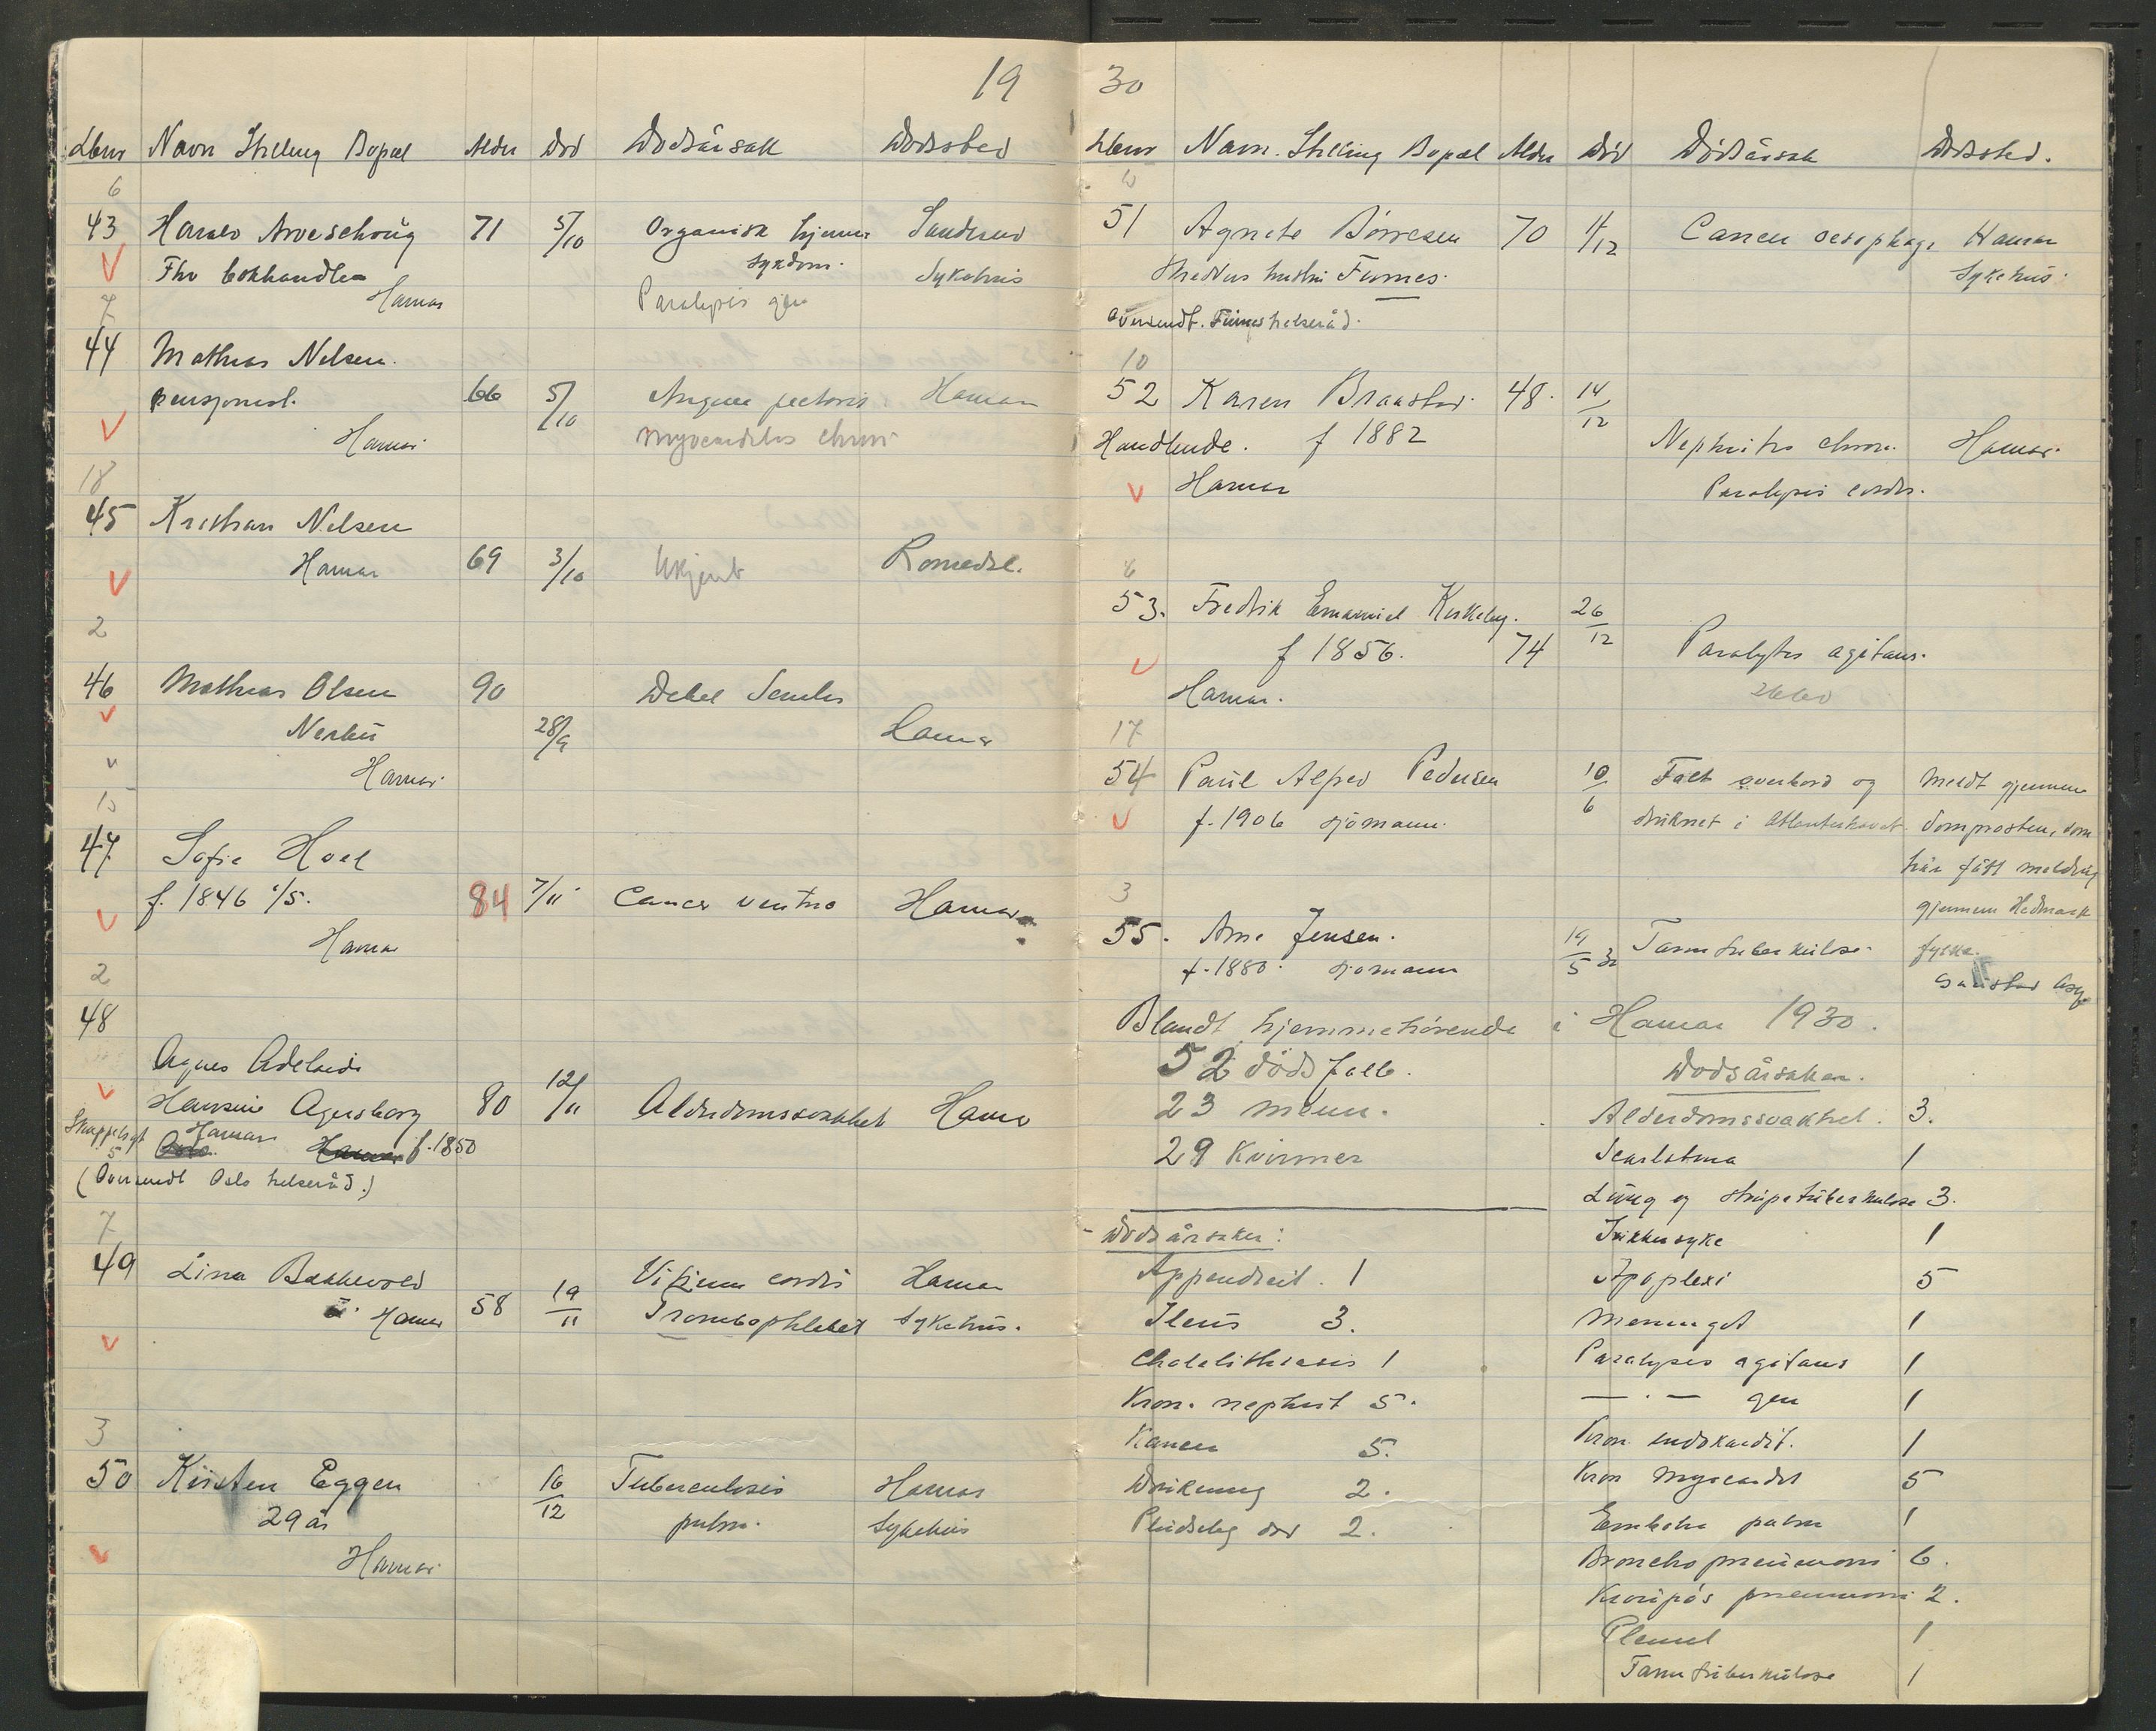 19
Lbnr Navn Stilling Bopæl Alder Død Dødsårsak Dødssted
6
43 Harald Arveschoug 71 5/10 Organisk hjerne Sanderud
Fhv bokhandler sykdom. Sykehus
Hamar Paralysis gen
7
44 Mathias Nilsen.
pensjonist. 66 5/10 Angina pectoris. Hamar
Hamar myocarditis chron
18
45 Kristian Nilsen
Hamar 69 3/10 Ukjent Romedal.
2
46 Mathias Olsen 90 Debil Senilis
28/9 Hamar
Hamar.
15
47 Sofie Hoel
f. 1846 /5. 84 7/11 Cancer ventric Hamar
Hamar
2
48
Agnes Adelaide
Hansine Agersborg 80 12/11 Alderdomssvakhet Hamar
Hamar f. 1850
5
(Oversendt Oslo helseråd.)
7
49 Lina Bakkevold Vitium cordis Hamar
Hamar 58 19/11 Trombophlebit Sykehus.
3
50 Kirsten Eggen 16/12 Tuberculosis Hamar
29 år pulm. Sykehus
Hamar
30
Lbnr Navn. Stilling Bopæl Alder Død Dødsårsak Dødssted.
51 Agnete Børresen 70 11/12 Cancer oesophagi Hamar
hustru Furnes. Sykehus
oversendt. Furnes helseråd.
10
52 Karen Braastad. 48. 14/12
Handlende. f 1882 Nephritis chron. Hamar.
Hamar Paralysis cordis.
6
53. Fredrik Emanuel Kirkeby. 26/12
f 1856. 74 Paralysis agitans.
Hamar.
17
54 Paul Alfred Pedersen 10/6 Falt overbord og meldt gjennem
f. 1906 sjømann. druknet i Atlanterhavet. Domprosten, som
har fått melding
3
gjennem Hedmark
55. Arne Jensen. 19/5 30 Tarmtuberkulose. fylke.
f. 1880. sjømann
Gaustad Asyl
Blandt hjemmehørende i Hamar 1930.
52 dødsfall. Dødsårsaker.
23 menn. Alderdomssvakhet. 3.
29 Kvinner Scarlatina 1
Lung og strupetuberkulose 3.
Dødsårsaker: Sukkersyke 1
Appendicit. 1 Apoplexi 5
Ileus 3. Meningit 1
Cholelithiasis 1 Paralysis agitans 1
Kron. nephrit 5. — . — gen 1
Kancer 5. Kron. endokardit. 1
Drukning 2. Kron Myocardit 5
Pludselig død 2. Emboli pulm 1
Bronchopneumoni 6.
Krupøs pneumoni 2.
Pleurit 1
Tarmtuberkulose 1